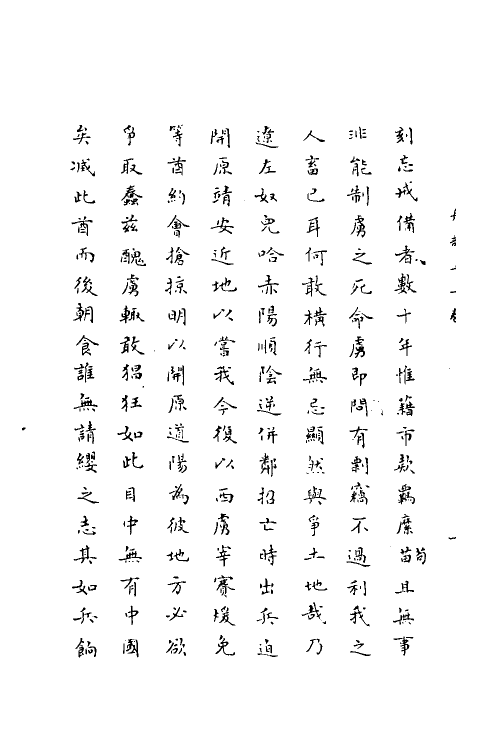 刻忘戒備者數十年惟籍市款羈縻苗苟且無事
非能制虜之死命虜即間有剽竊不過利我之
人畜已耳何敢橫行無忌顯然與爭土地哉乃
遼左奴兒哈赤陽順陰逆併鄰招亡時出兵迫
開原靖安近地以嘗我今復以西虜宰賽煖兔
等酋約會搶掠明以開原道陽為彼地方必欲
爭取蠢茲醜虜輒敢猖狂如此目中無有中國
矣滅此酋而後朝食誰無請纓之志其如兵餉